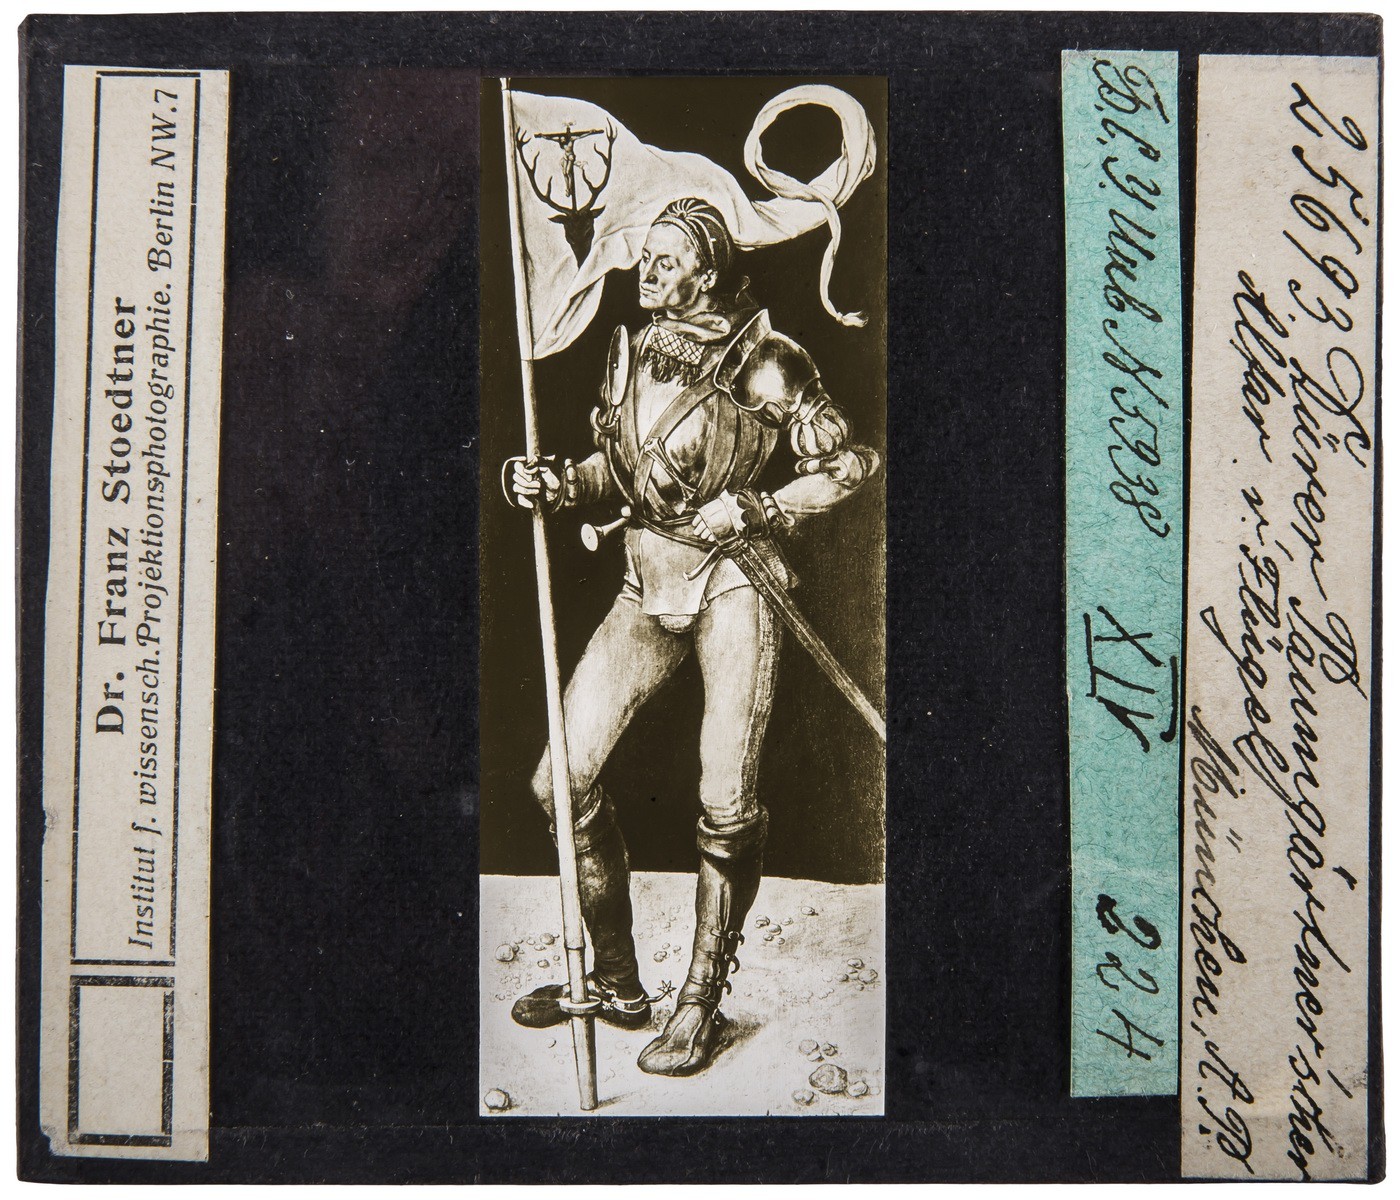 Dr. Franz Stoedtner
Institut f. wissensch. Projektionsphotographie. Berlin NW. 7
XIV 224
25693 Dürer, Paumgärtnerischer
Altar. r. Flügel
München, A. P.